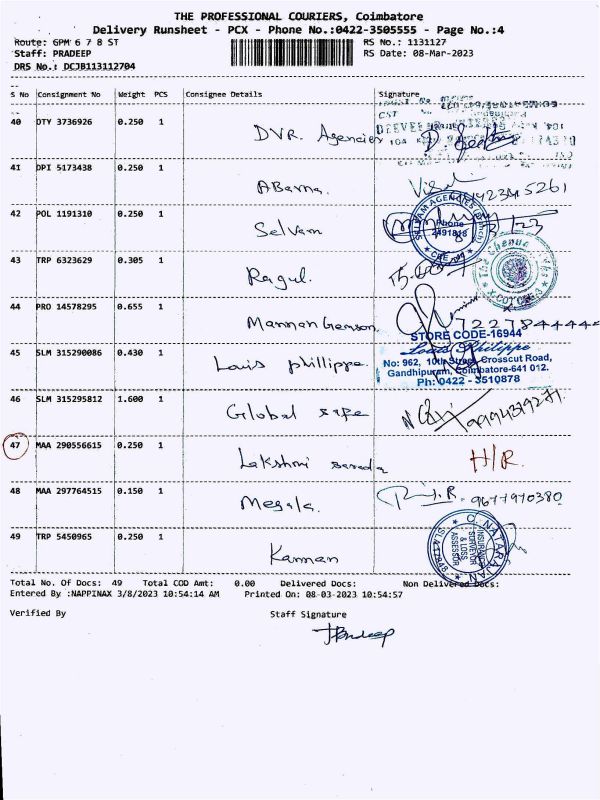 THE PROFESSIONAL COURIERS, Coimbatore
Delivery Runsheet - PCX - Phone No.:0422-3505555 - Page No.:4
Route: GPM 6 7 8 ST RS No.: 1131127
Staff: PRADEEP RS Date: 08-Mar-2023
DRS No.: DCJB113112704
S No Consignment No Weight PCS Consignee Details Signature
40 DTY 3736926 0.250 1
DVR. Agencies
41 DPI 5173438 0.250 1
Abarna.
42 POL 1191310 0.250 1
Selvam
SELVAM AGENCIES
Phone
2491818
43 TRP 6323629 0.305 1
Ragul.
44 PRO 14578295 0.655 1
Mannan Genson
7227844444
STORE CODE-16944
45 SLM 315290086 0.430 1
Louis phillippe
Louis Philippe
No: 962, 10th Street, Crosscut Road,
Gandhipuram, Coimbatore-641 012.
Ph: 0422 - 3510878
46 SLM 315295812 1.600 1
Global safe
9994319271
47 MAA 290556615 0.250 1
Lakshmi sarada H/R.
48 MAA 297764515 0.150 1
Megala. 9677970380
49 TRP 5450965 0.250 1
Kannan
O. NATARAJAN
INSURANCE
SURVEYOR
& LOSS
ASSESSOR
Total No. Of Docs: 49 Total COD Amt: 0.00 Delivered Docs: Non Delivered Docs:
Entered By :NAPPINAX 3/8/2023 10:54:14 AM Printed On: 08-03-2023 10:54:57
Verified By Staff Signature